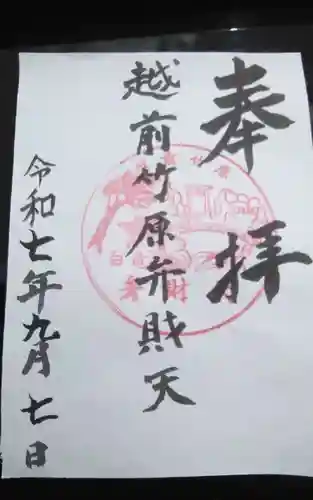 奉拝
越前竹原弁財天
令和七年九月七日